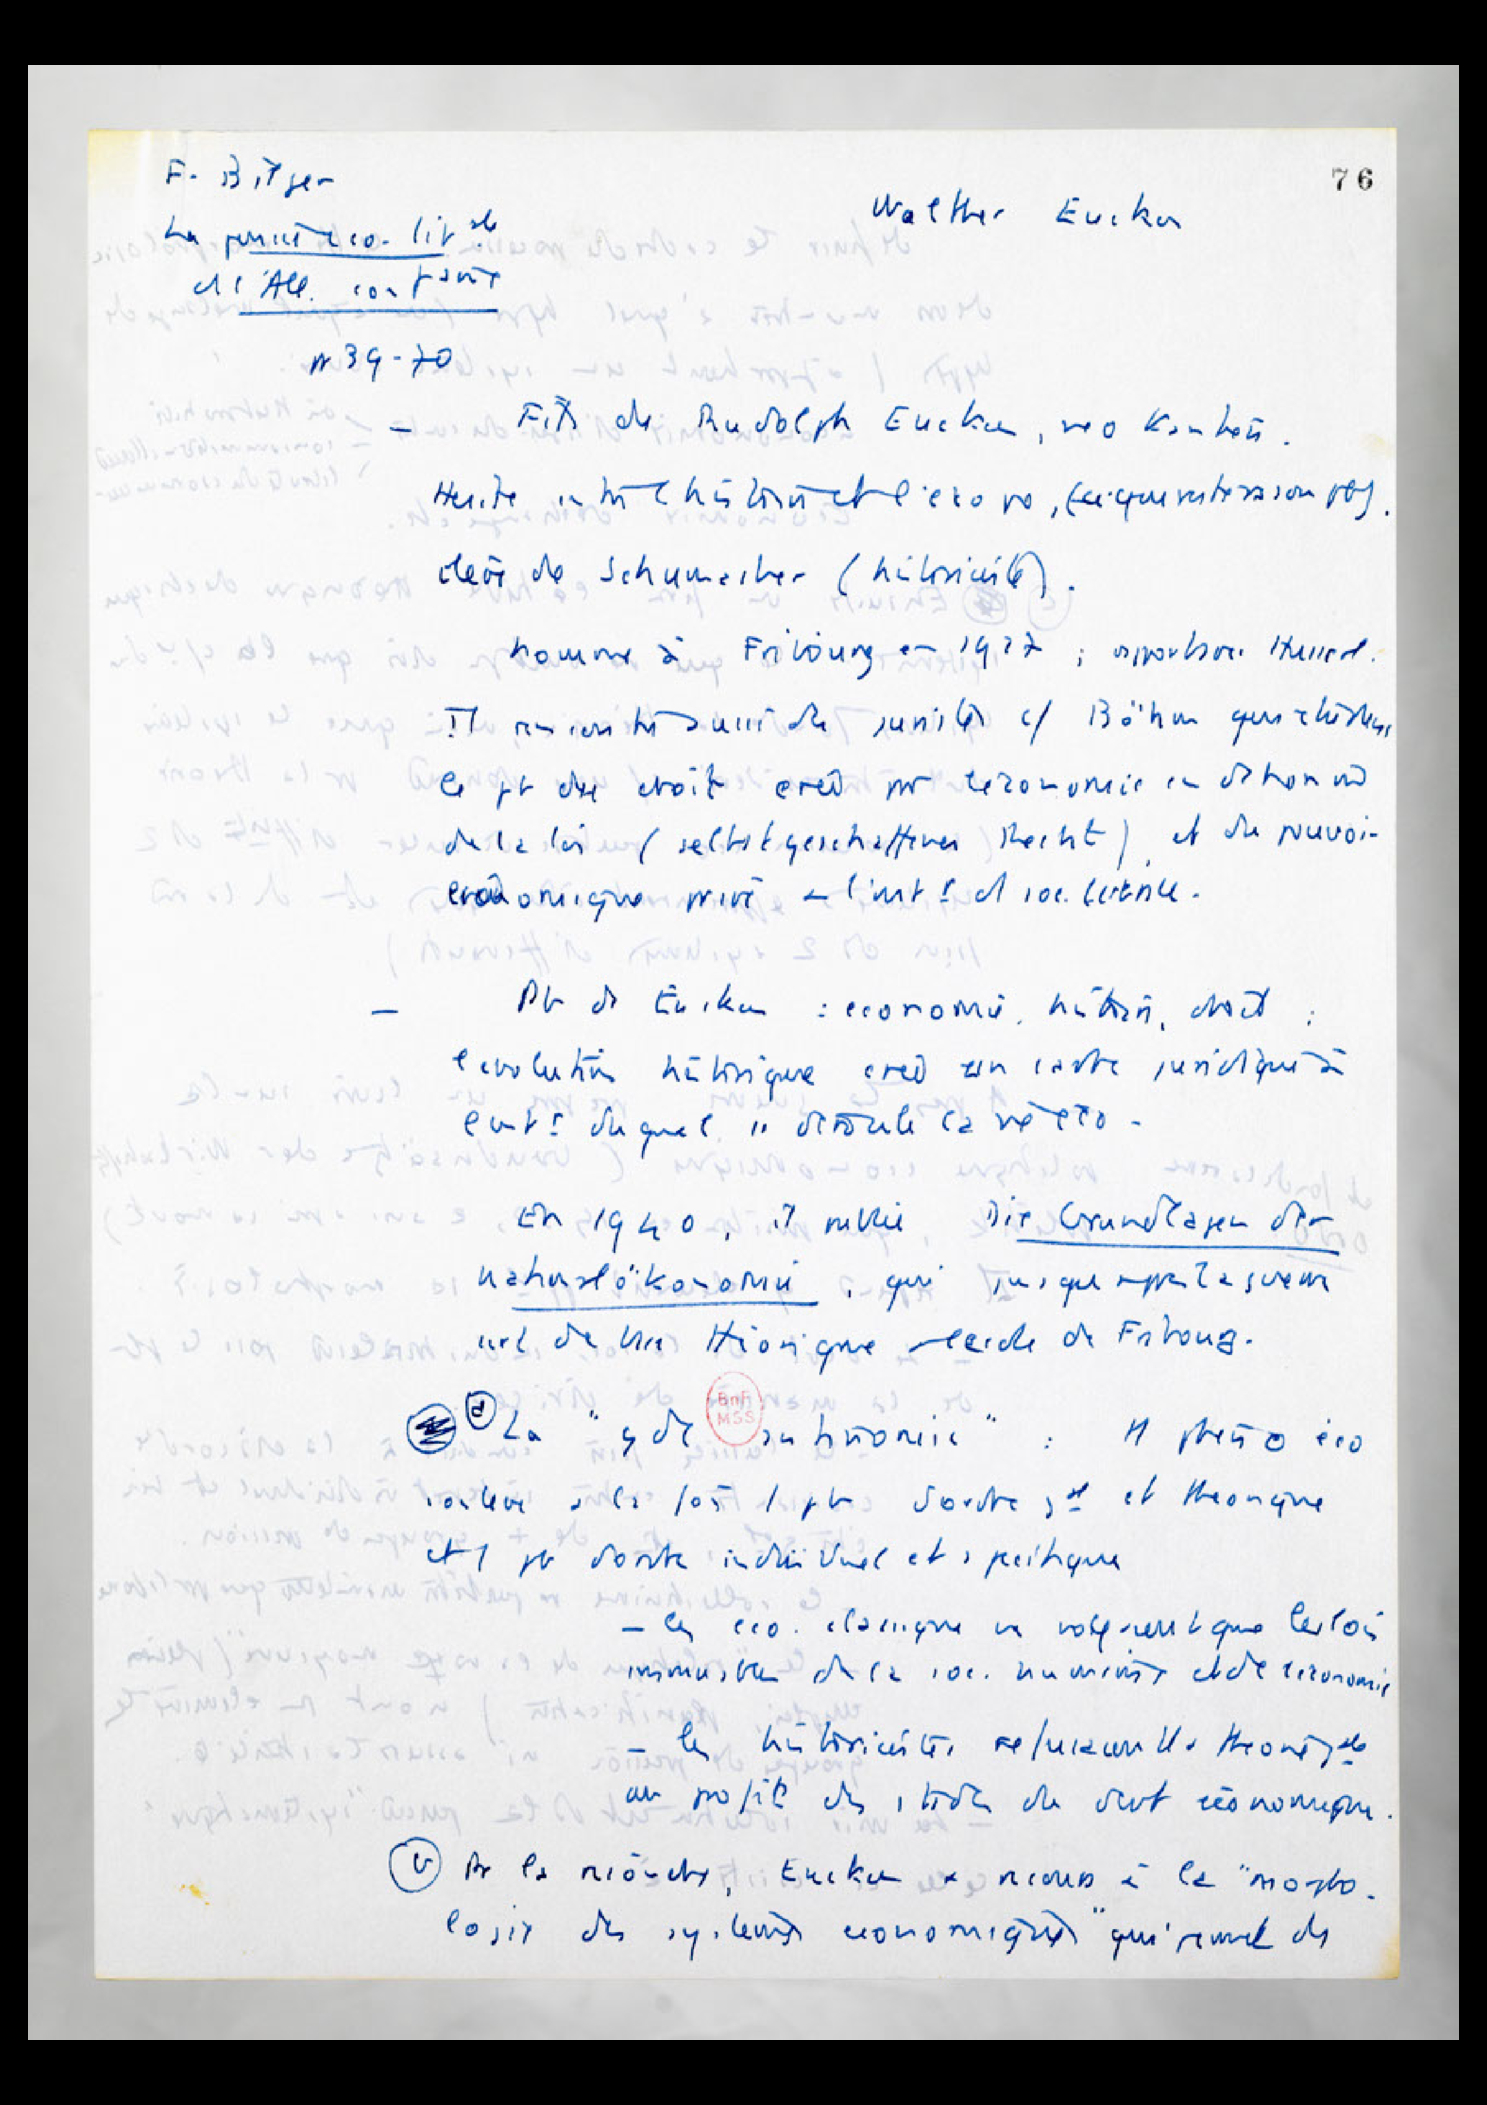 76
F. Bilger
La pensée éco. lib ale
de l'All. contp aine
p 39-70
Walther Eucken
- Fils de Rudolph Eucken, neo Kantien.
Hesite entre l'histoire et l'eco po,
élève de Schumacher (historiciste).
Nomme à Fribourg en 1927 ; Husserl.
Il rencontre aussi des juristes c/ Böhm
le pb du droit créé par l'economie en dehors
de la loi (selbstgeschaffenes Recht), et du pouvoir
economique privé a l'int r d soc. libérale.
- Pb de Eucken : economie, histoire, droit ;
l'evolution historique crée un cadre juridique à
l'int r duquel se déroule la vie éco.
En 1940, il publie Die Grundlagen der
Nationalökonomie, qui jusque après la guerre
est de base théorique de Fribourg.
a La "gde antinomie" : tt phéno éco
soulève à la fois 1 pb d'ordre gal et théorique
et 1 pb d'ordre individuel et specifique
- les éco. classiques ne voyaient que les lois
immuables de la soc. humaine et de l'economie
- les historicistes refusaient les théories gales
au profit des études du devt économique.
b Pr la résoudre, Eucken a recours à la "morpho-
logie des systemes economiques" qui permet de
BnF
MSS